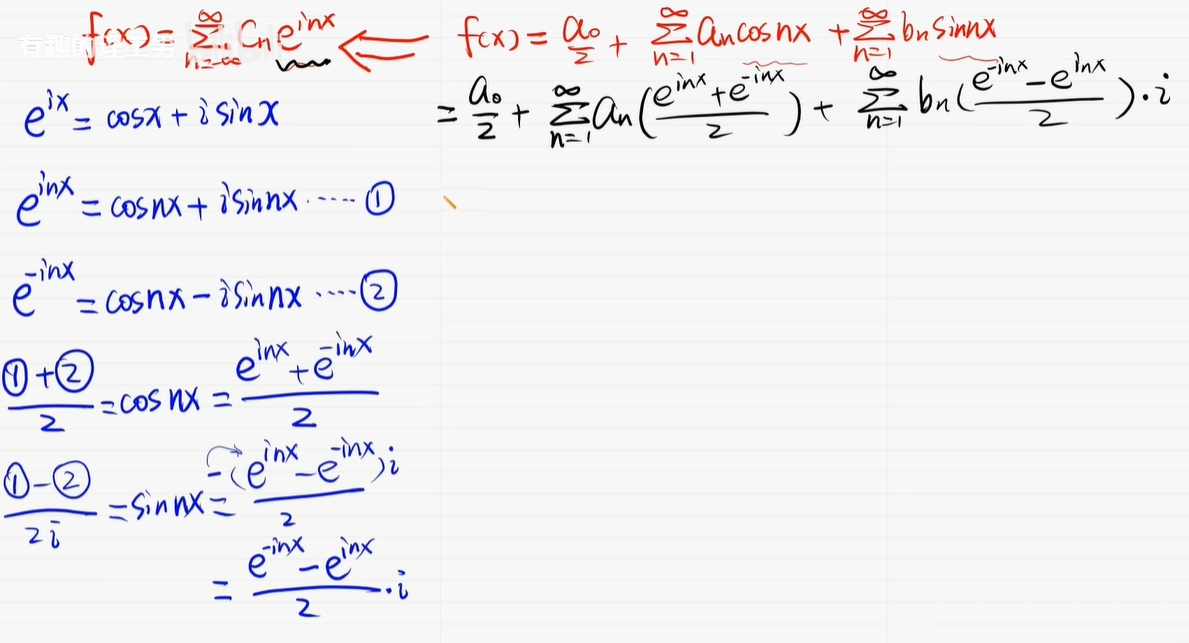 f(x) = ∞∑n=-∞ Cn e^{inx} ⇐ f(x) = a₀/2 + ∞∑n=1 an cosnx + ∞∑n=1 bn sinnx
有趣的理工男
= a₀/2 + ∞∑n=1 an((e^{inx} + e^{-inx})/2) + ∞∑n=1 bn((e^{-inx} - e^{inx})/2)·i
e^{ix} = cosx + i sinx
e^{inx} = cosnx + i sinnx ····· ①
e^{-inx} = cosnx - i sinnx ····· ②
(①+②)/2 = cosnx = (e^{inx} + e^{-inx})/2
(①-②)/2i = sinnx = -(e^{inx} - e^{-inx})i/2
= (e^{-inx} - e^{inx})/2 ·i